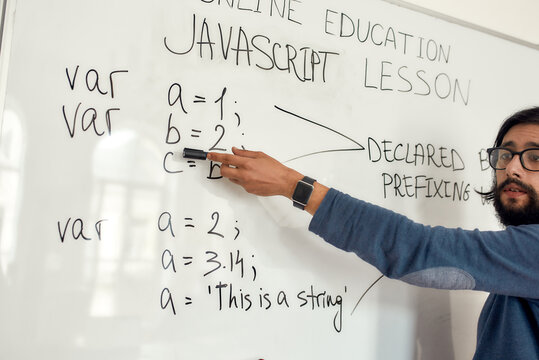 ONLINE EDUCATION
JAVASCRIPT LESSON
var a = 1;
var b = 2;
c = b
DECLARED
PREFIXING
var a = 2;
a = 3.14;
a = 'This is a string'